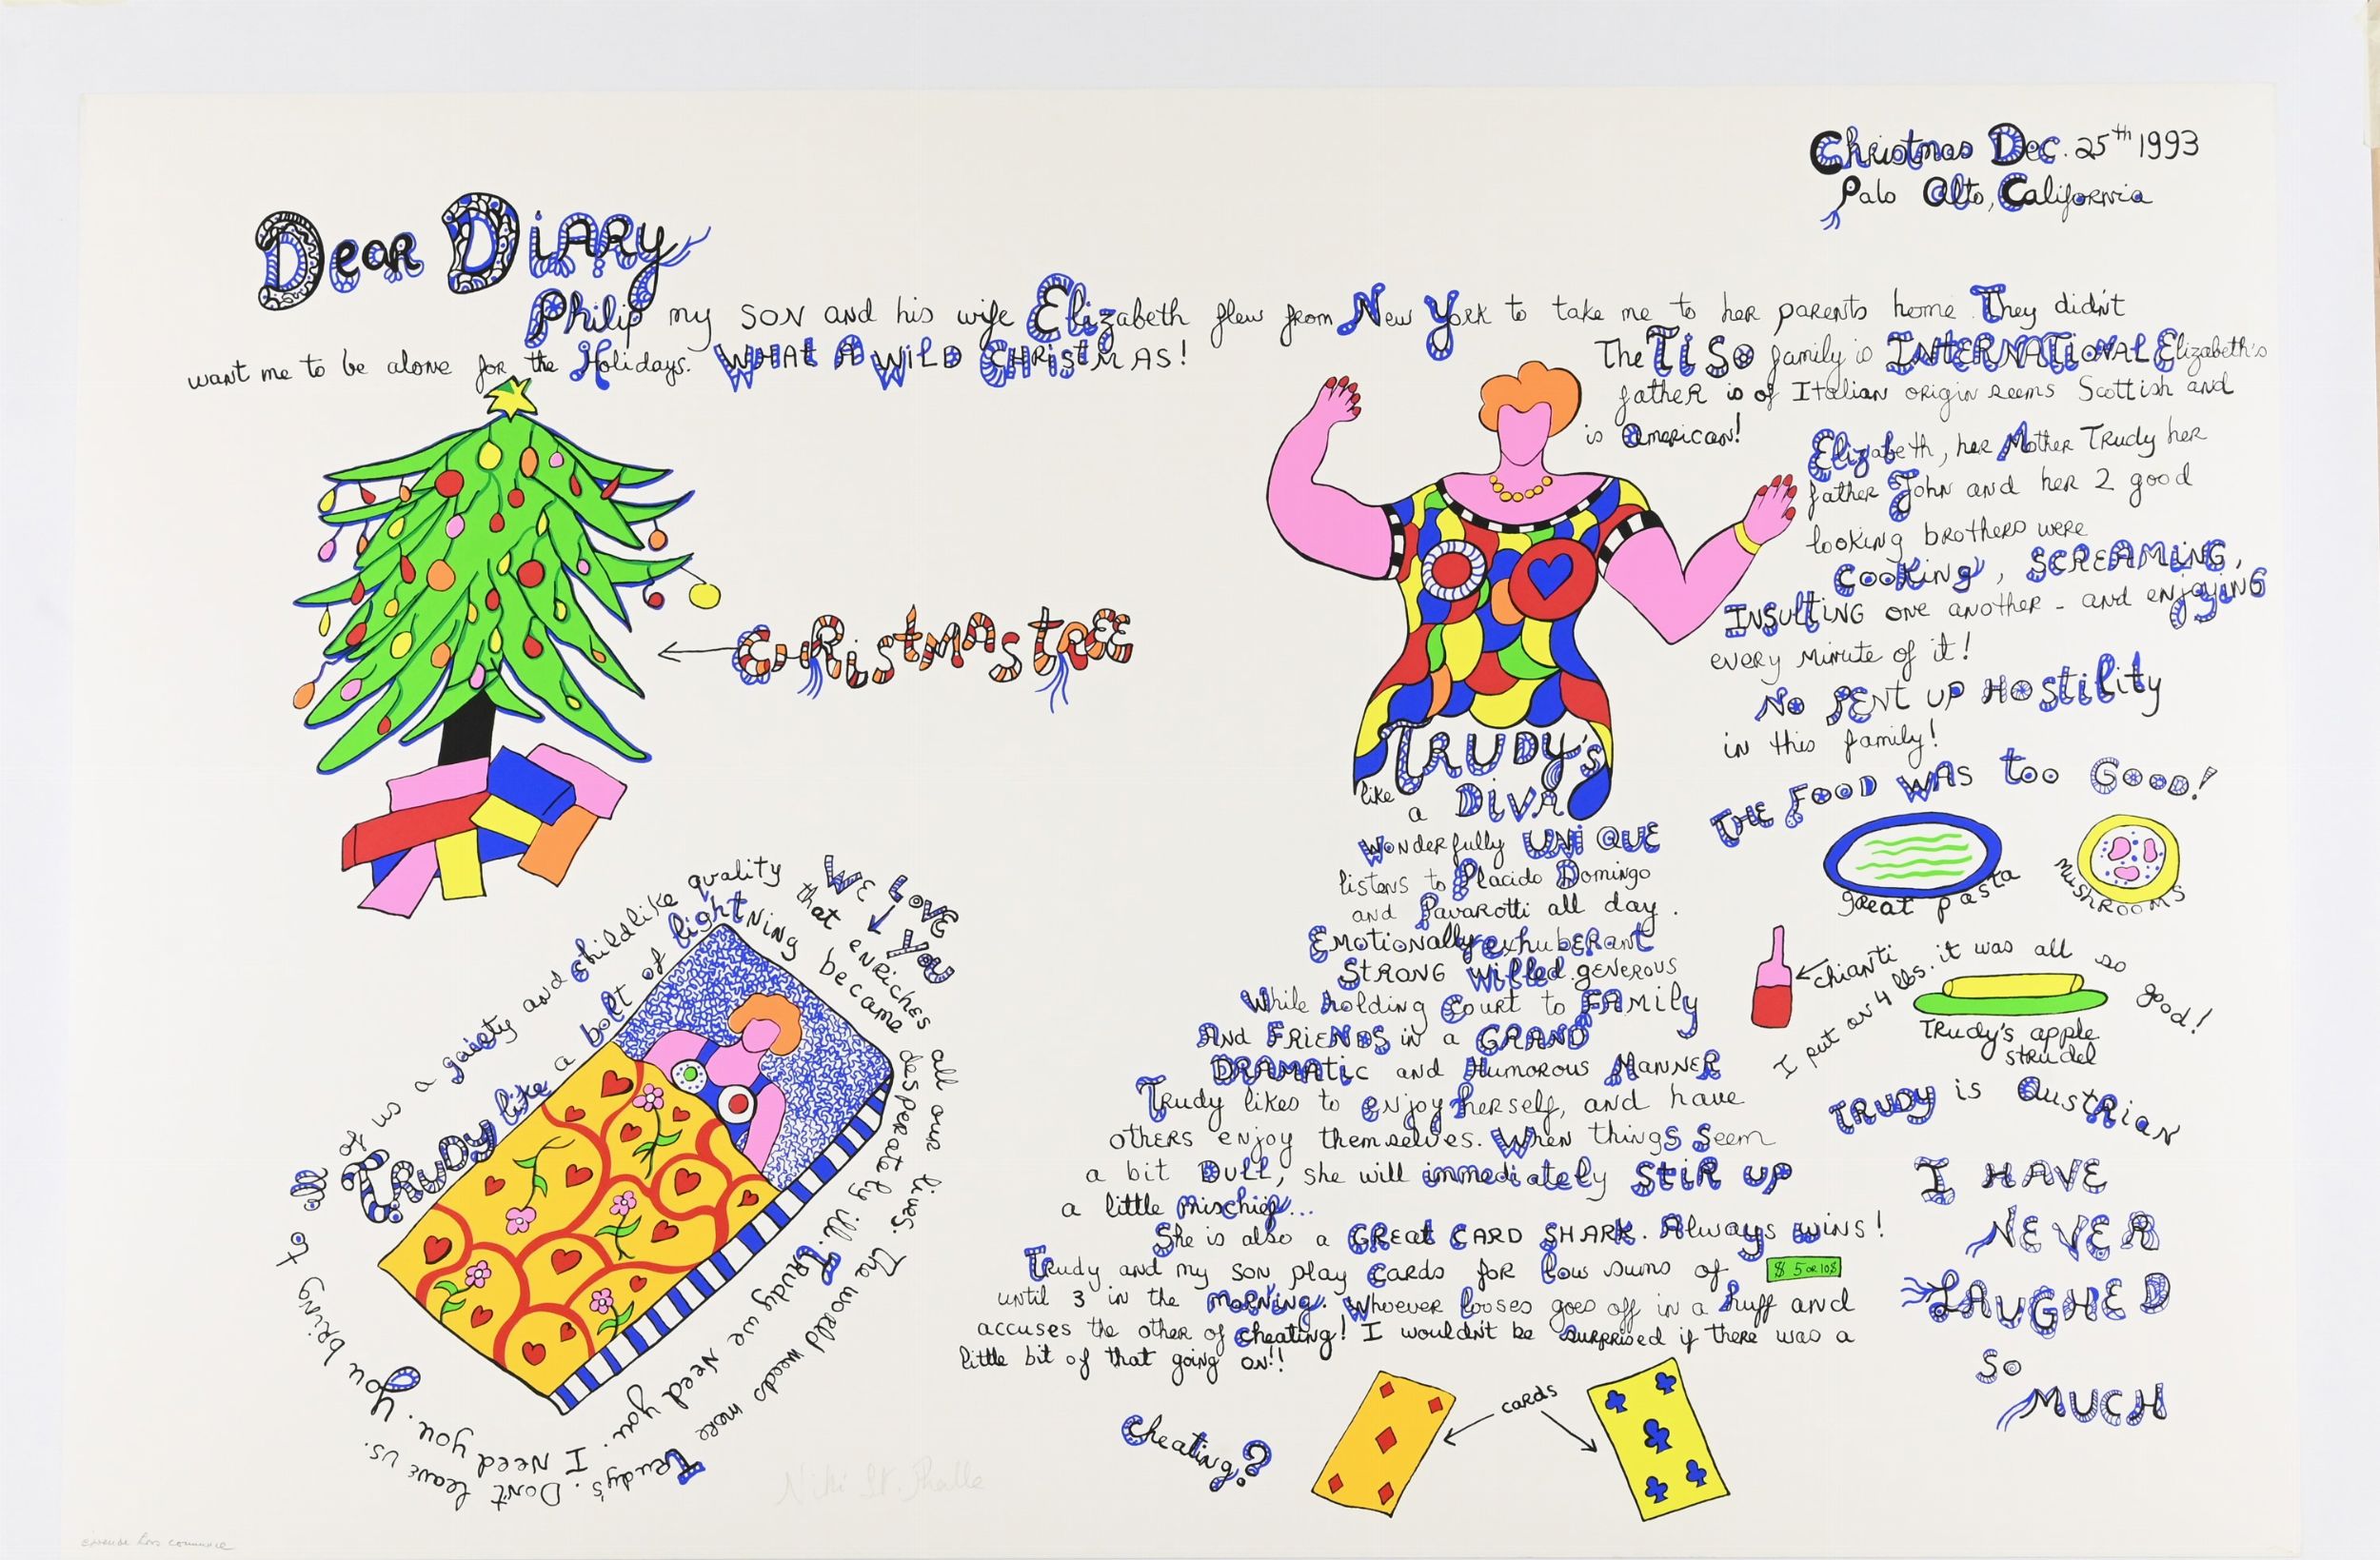 Christmas Dec. 25th 1993
Palo Alto, California
Dear Diary
Philip my son and his wife Elizabeth flew from New York to take me to her parents home. They didn't
want me to be alone for the Holidays. WHAT A WILD CHRISTMAS!
The TISO family is INTERNATIONAL Elizabeth's
father is of Italian origin seems Scottish and
is American!
Elizabeth, her Mother Trudy her
father John and her 2 good
looking brothers were
Cooking, SCREAMING,
INSULTING one another - and enjoying
every minute of it!
No PENT UP HOSTILITY
in this family!
THE FOOD WAS too GOOD!
great pasta
MUSHROOMS
chianti
I put on 4 lbs. it was all so good!
TRUDY's apple
strudel
TRUDY is Austrian
I HAVE
NEVER
LAUGHED
So
MUCH
CHRISTMAS TREE
TRUDY's
like
a DIVA
Wonderfully UNIQUE
listens to Placido Domingo
and Pavarotti all day.
Emotionally exhuberant
Strong willed. generous
While holding Court to FAMILY
And FRIENDS in a GRAND
DRAMATIC and Humorous MANNER
Trudy likes to enjoy herself, and have
others enjoy themselves. When things seem
a bit DULL, she will immediately STIR UP
a little mischief...
She is also a GREAT CARD SHARK. Always wins!
Trudy and my son play cards for low sums of $ 5 or 10$
until 3 in the morning. Whoever looses goes off in a huff and
accuses the other of cheating! I wouldn't be surprised if there was a
little bit of that going on!!
cheating?
cards
WE LOVE
YOU
TRUDY like a bolt of lightning became desperately ill. Trudy we need you. I Need you. You bring to all
of us a gaiety and childlike quality that enriches all our lives. The world needs more Trudy's. Don't leave us.
Niki St. Phalle
épreuve hors commerce